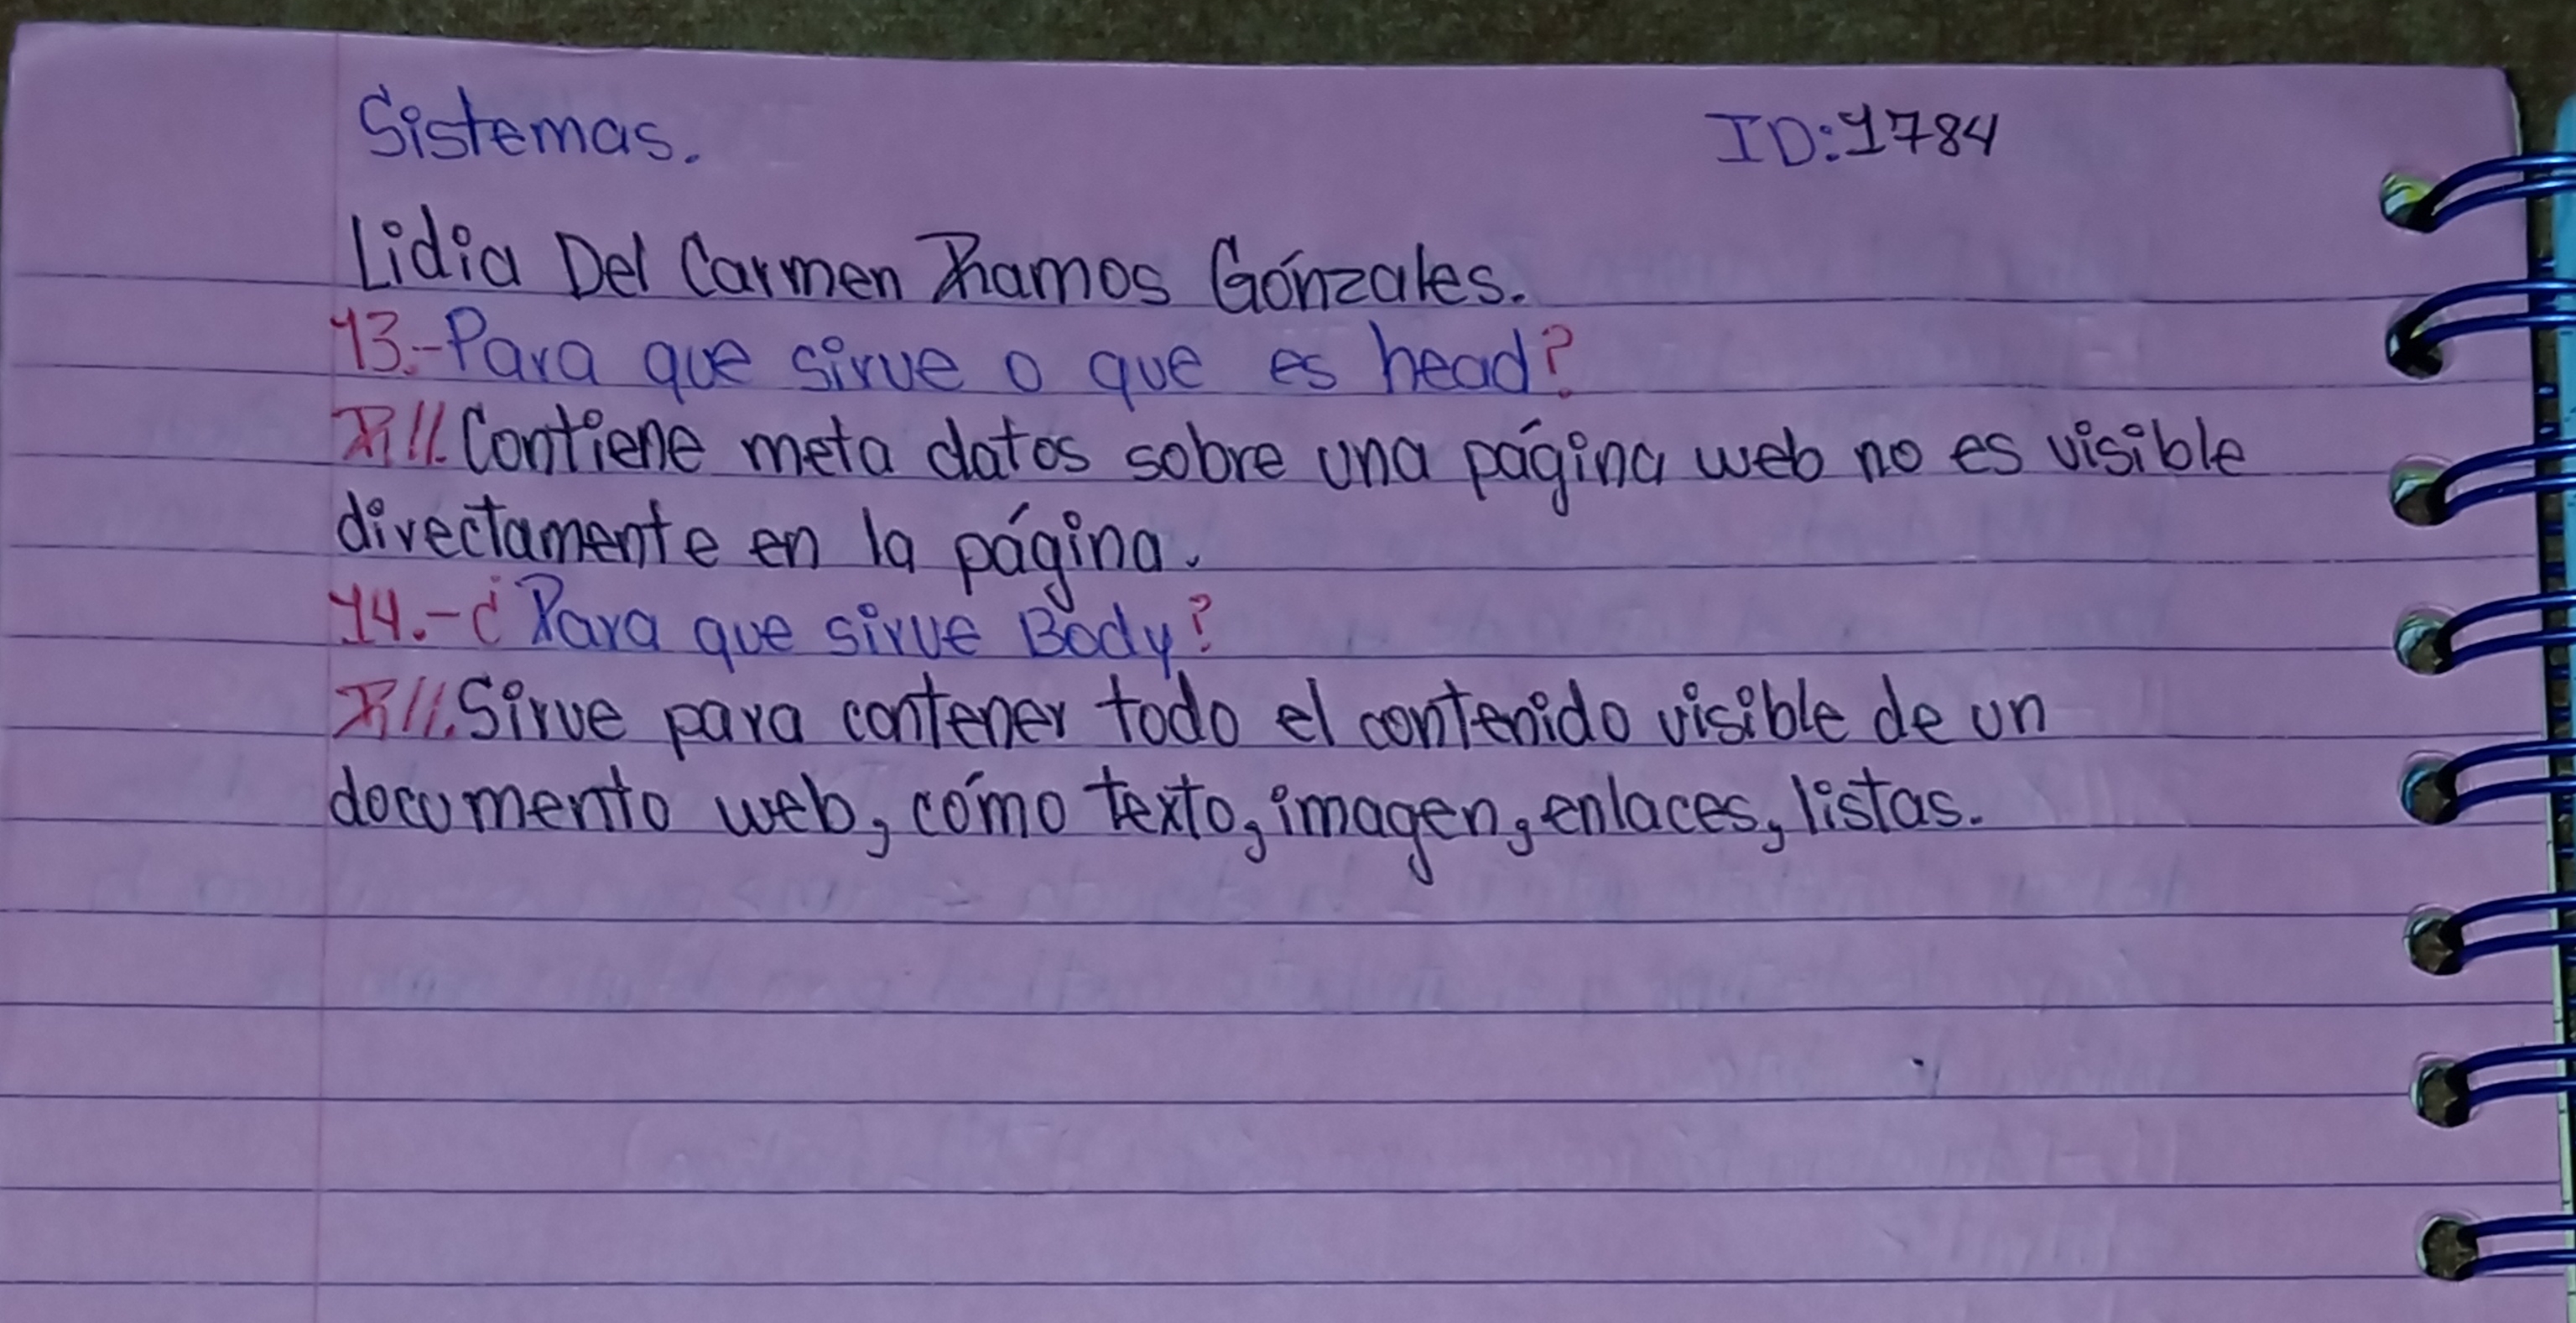 Sistemas. ID:1784
Lidia Del Carmen Ramos Gónzales.
13.-Para que sirve o que es head?
R//. Contiene meta datos sobre una página web no es visible
directamente en la página.
14.-¿Para que sirve Body?
R//. Sirve para contener todo el contenido visible de un
documento web, cómo texto, imagen, enlaces, listas.